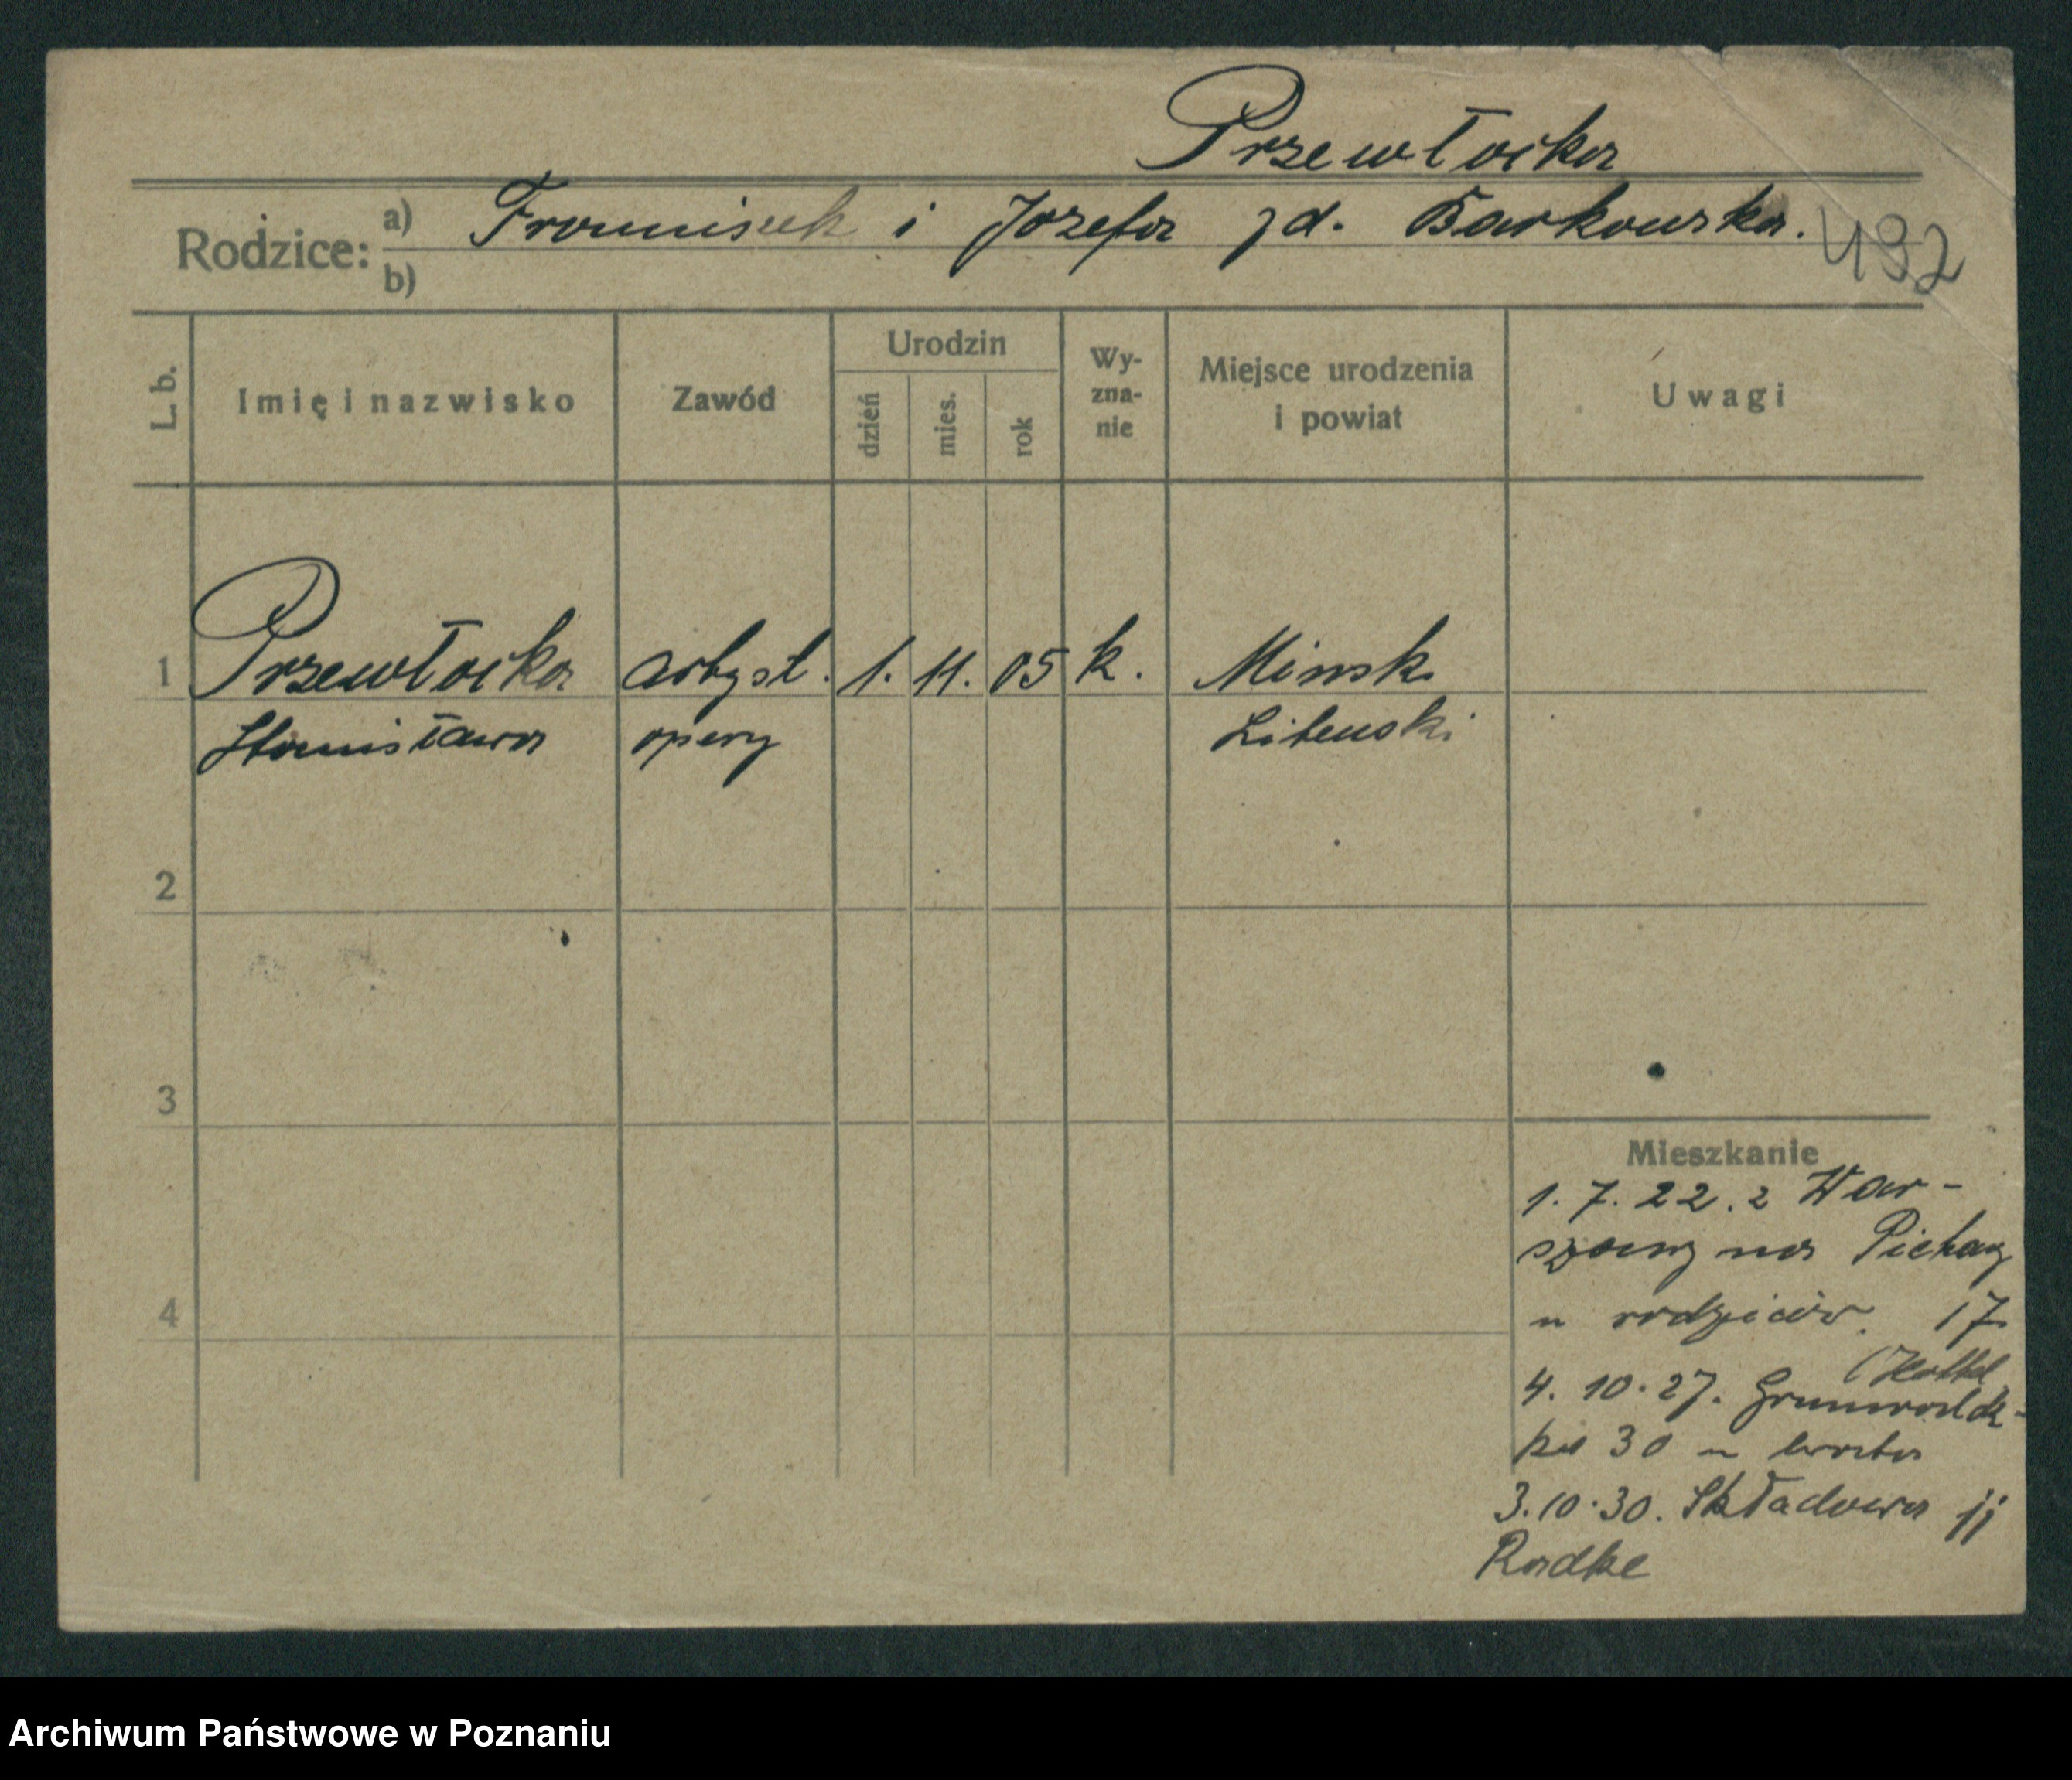 Przewłocka
Rodzice: a) Franciszek i Józefa zd. Barkowska.
b)
492
L. b.
Imię i nazwisko
Zawód
Urodzin
dzień
mies.
rok
Wy-
zna-
nie
Miejsce urodzenia
i powiat
Uwagi
1 Przewłocka artyst. 1. 11. 05 k. Minsk
Stanisława opery Litewski
2
3
4
Mieszkanie
1. 7. 22. z War-
szawy na Piekary
u rodziców. 17
(Hottel
4. 10. 27. Grunwaldz-
ka 30 u
3. 10. 30. Składowa 11
Radke
Archiwum Państwowe w Poznaniu